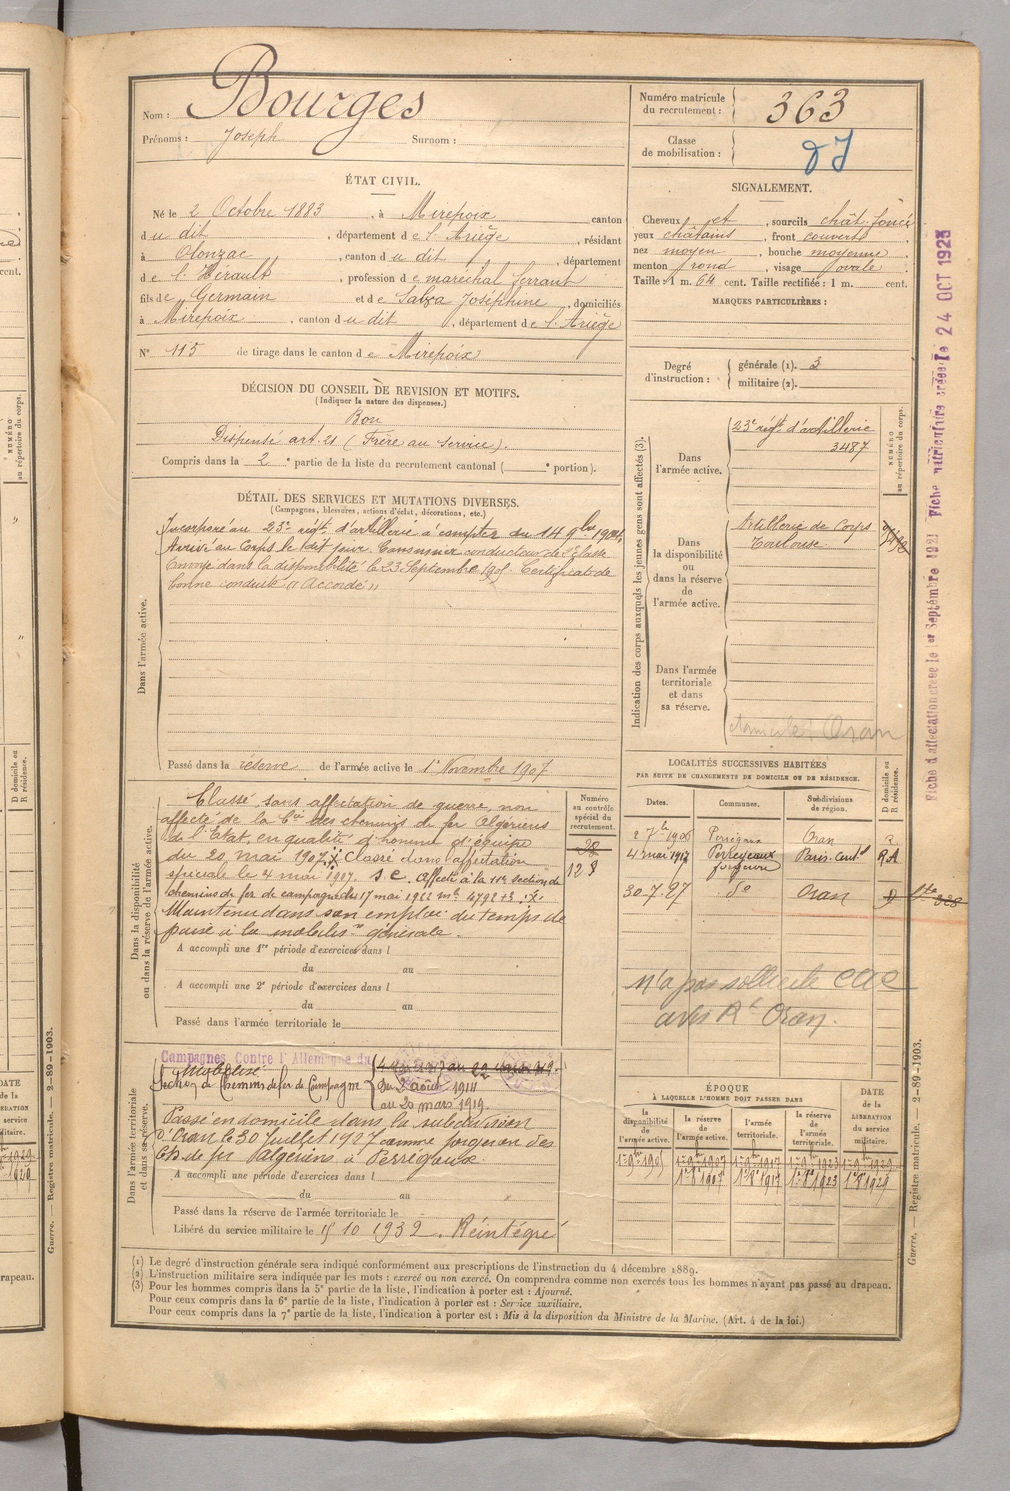 Nom : Bourges
Prénoms : Joseph Surnom :
Numéro matricule du recrutement : 363
Classe de mobilisation :
ÉTAT CIVIL.
Né le 2 Octobre 1883, à Mirepoix canton
du dit, département de l'Ariège, résidant
à Olonzac, canton du dit, département
de l'Hérault, profession de maréchal ferrant
fils de Germain et de Salza Joséphine, domiciliés
à Mirepoix, canton du dit, département de l'Ariège
N° 115 de tirage dans le canton de Mirepoix
SIGNALEMENT.
Cheveux et, sourcils chât. foncé
yeux châtains, front couvert
nez moyen, bouche moyenne
menton rond, visage ovale
Taille : 1 m. 64 cent. Taille rectifiée : 1 m. cent.
MARQUES PARTICULIÈRES :
Degré d'instruction : générale (1). 3
militaire (2).
DÉCISION DU CONSEIL DE REVISION ET MOTIFS.
(Indiquer la nature des dispenses.)
Bon
Dispensé art. 21 (Frère au service).
Compris dans la 2e partie de la liste du recrutement cantonal ( e portion).
DÉTAIL DES SERVICES ET MUTATIONS DIVERSES.
(Campagnes, blessures, actions d'éclat, décorations, etc.)
Dans l'armée active.
Incorporé au 23e régt d'artillerie à compter du 14 9bre 1904,
Arrivé au Corps le dit jour. Canonnier conducteur de 2e classe
Envoyé dans la disponibilité le 23 Septembre 1905. Certificat de
bonne conduite "Accordé"
Passé dans la réserve de l'armée active le 1er Novembre 1907.
Indication des corps auxquels les jeunes gens sont affectés (3).
NUMÉRO au répertoire du corps.
Dans l'armée active.
23e régt d'artillerie
3487
Dans la disponibilité ou dans la réserve de l'armée active.
Artillerie de Corps
Toulouse.
Dans l'armée territoriale et dans sa réserve.
domicile : Oran
LOCALITÉS SUCCESSIVES HABITÉES
PAR SUITE DE CHANGEMENTS DE DOMICILE OU DE RÉSIDENCE.
D domicile ou R résidence.
Dates. Communes. Subdivisions de région.
2 7bre 1906 Perrégaux Oran R
4 mai 1917 Perregaux Paris-Cental RA
forgeron
30-7-27 do Oran D
n'a pas sollicité
avis Rt Oran.
Dans la disponibilité ou dans la réserve de l'armée active.
Numéro au contrôle spécial du recrutement.
28
128
Classé sans affectation de guerre, non
affecté de la Cie des chemins de fer Algériens
de l'Etat, en qualité d'homme d'équipe
du 20 mai 1907. Classé dans l'affectation
spéciale le 4 mai 1917. S.C. Affecté à la 11e section de
chemins de fer de campagne du 17 mai 1922
Maintenu dans son emploi du temps de
paix à la mobilis.on générale.
A accompli une 1re période d'exercices dans l
du au
A accompli une 2e période d'exercices dans l
du au
Passé dans l'armée territoriale le
Dans l'armée territoriale et dans sa réserve.
Campagnes Contre l'Allemagne du
Mobilisé
Section de Chemins de fer de Campagne
du 2 août 1914
au 20 mars 1919.
Passé en domicile dans la subdivision
d'Oran le 30 Juillet 1927 comme forgeron des
Ch. de fer Algériens à Perrégaux.
A accompli une période d'exercices dans l
du au
Passé dans la réserve de l'armée territoriale le
Libéré du service militaire le 15 10 1932. Réintégré
ÉPOQUE
À LAQUELLE L'HOMME DOIT PASSER DANS
la disponibilité de l'armée active.
la réserve de l'armée active.
l'armée territoriale.
la réserve de l'armée territoriale.
DATE de la LIBÉRATION du service militaire.
1er 9bre 1905 1er 9bre 1907 1er 9bre 1917 1er 9bre 1923 1er 9bre 1929
1er 8bre 1907 1er 8bre 1917 1er 8bre 1923 1er 8bre 1929
(1) Le degré d'instruction générale sera indiqué conformément aux prescriptions de l'instruction du 4 décembre 1889.
(2) L'instruction militaire sera indiquée par les mots : exercé ou non exercé. On comprendra comme non exercés tous les hommes n'ayant pas passé au drapeau.
(3) Pour les hommes compris dans la 5e partie de la liste, l'indication à porter est : Ajourné.
Pour ceux compris dans la 6e partie de la liste, l'indication à porter est : Service auxiliaire.
Pour ceux compris dans la 7e partie de la liste, l'indication à porter est : Mis à la disposition du Ministre de la Marine. (Art. 4 de la loi.)
Fiche d'affectation créée le 1er Septembre 1921 Fiche matriculaire créée le 24 OCT 1925
Guerre. — Registre matricule. — 2-89-1903.
Guerre. — Registre matricule. — 2-89-1903.